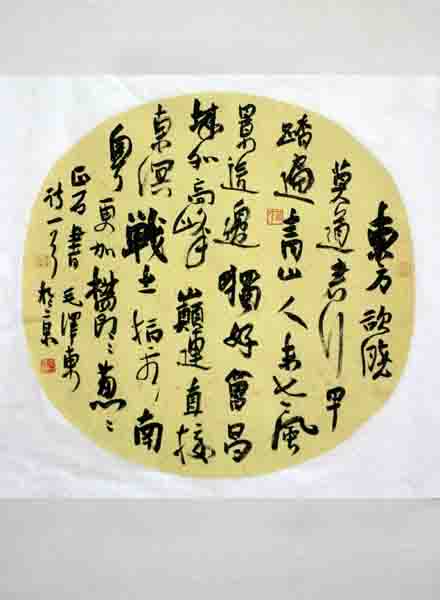 東方欲曉
莫道君行早
踏遍青山人未老風
景這邊獨好會昌
城外高峰巔連直接
東溟戰士指看南
粵更加欝々蔥々
正石書毛澤東
詩一首於京